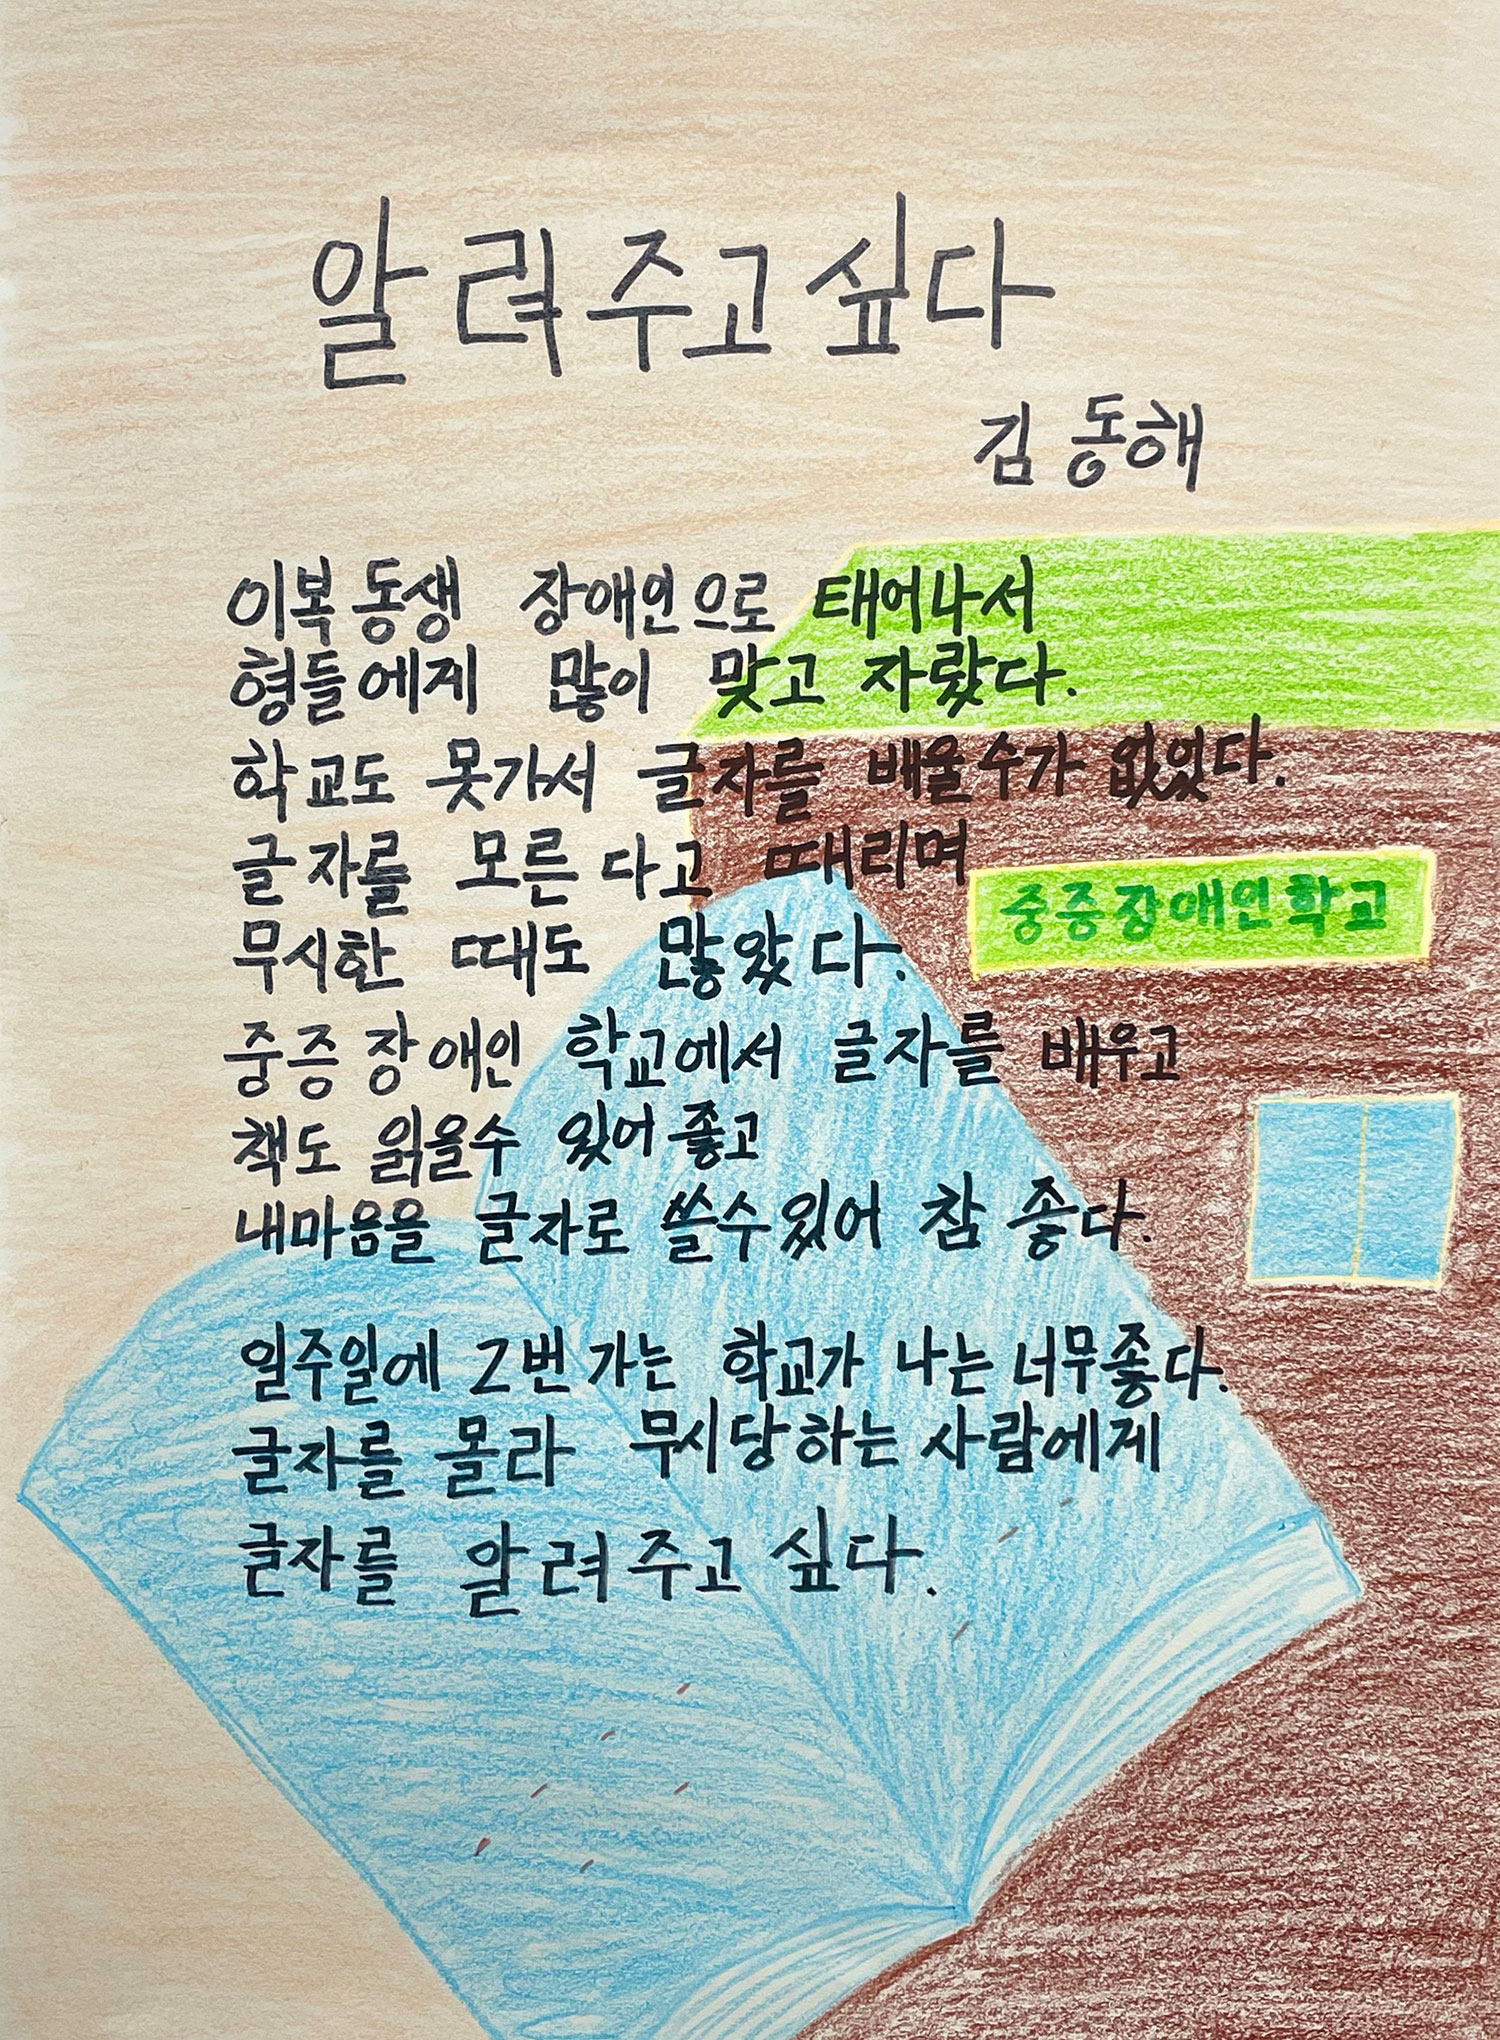 알려주고싶다
김동해
이복동생 장애인으로 태어나서
형들에게 많이 맞고 자랐다.
학교도 못가서 글자를 배울수가 없었다.
글자를 모른다고 때리며
무시한 때도 많았다.
중증장애인학교
중증장애인 학교에서 글자를 배우고
책도 읽을수 있어 좋고
내마음을 글자로 쓸수있어 참 좋다.
일주일에 2번가는 학교가 나는 너무좋다.
글자를 몰라 무시당하는 사람에게
글자를 알려주고 싶다.